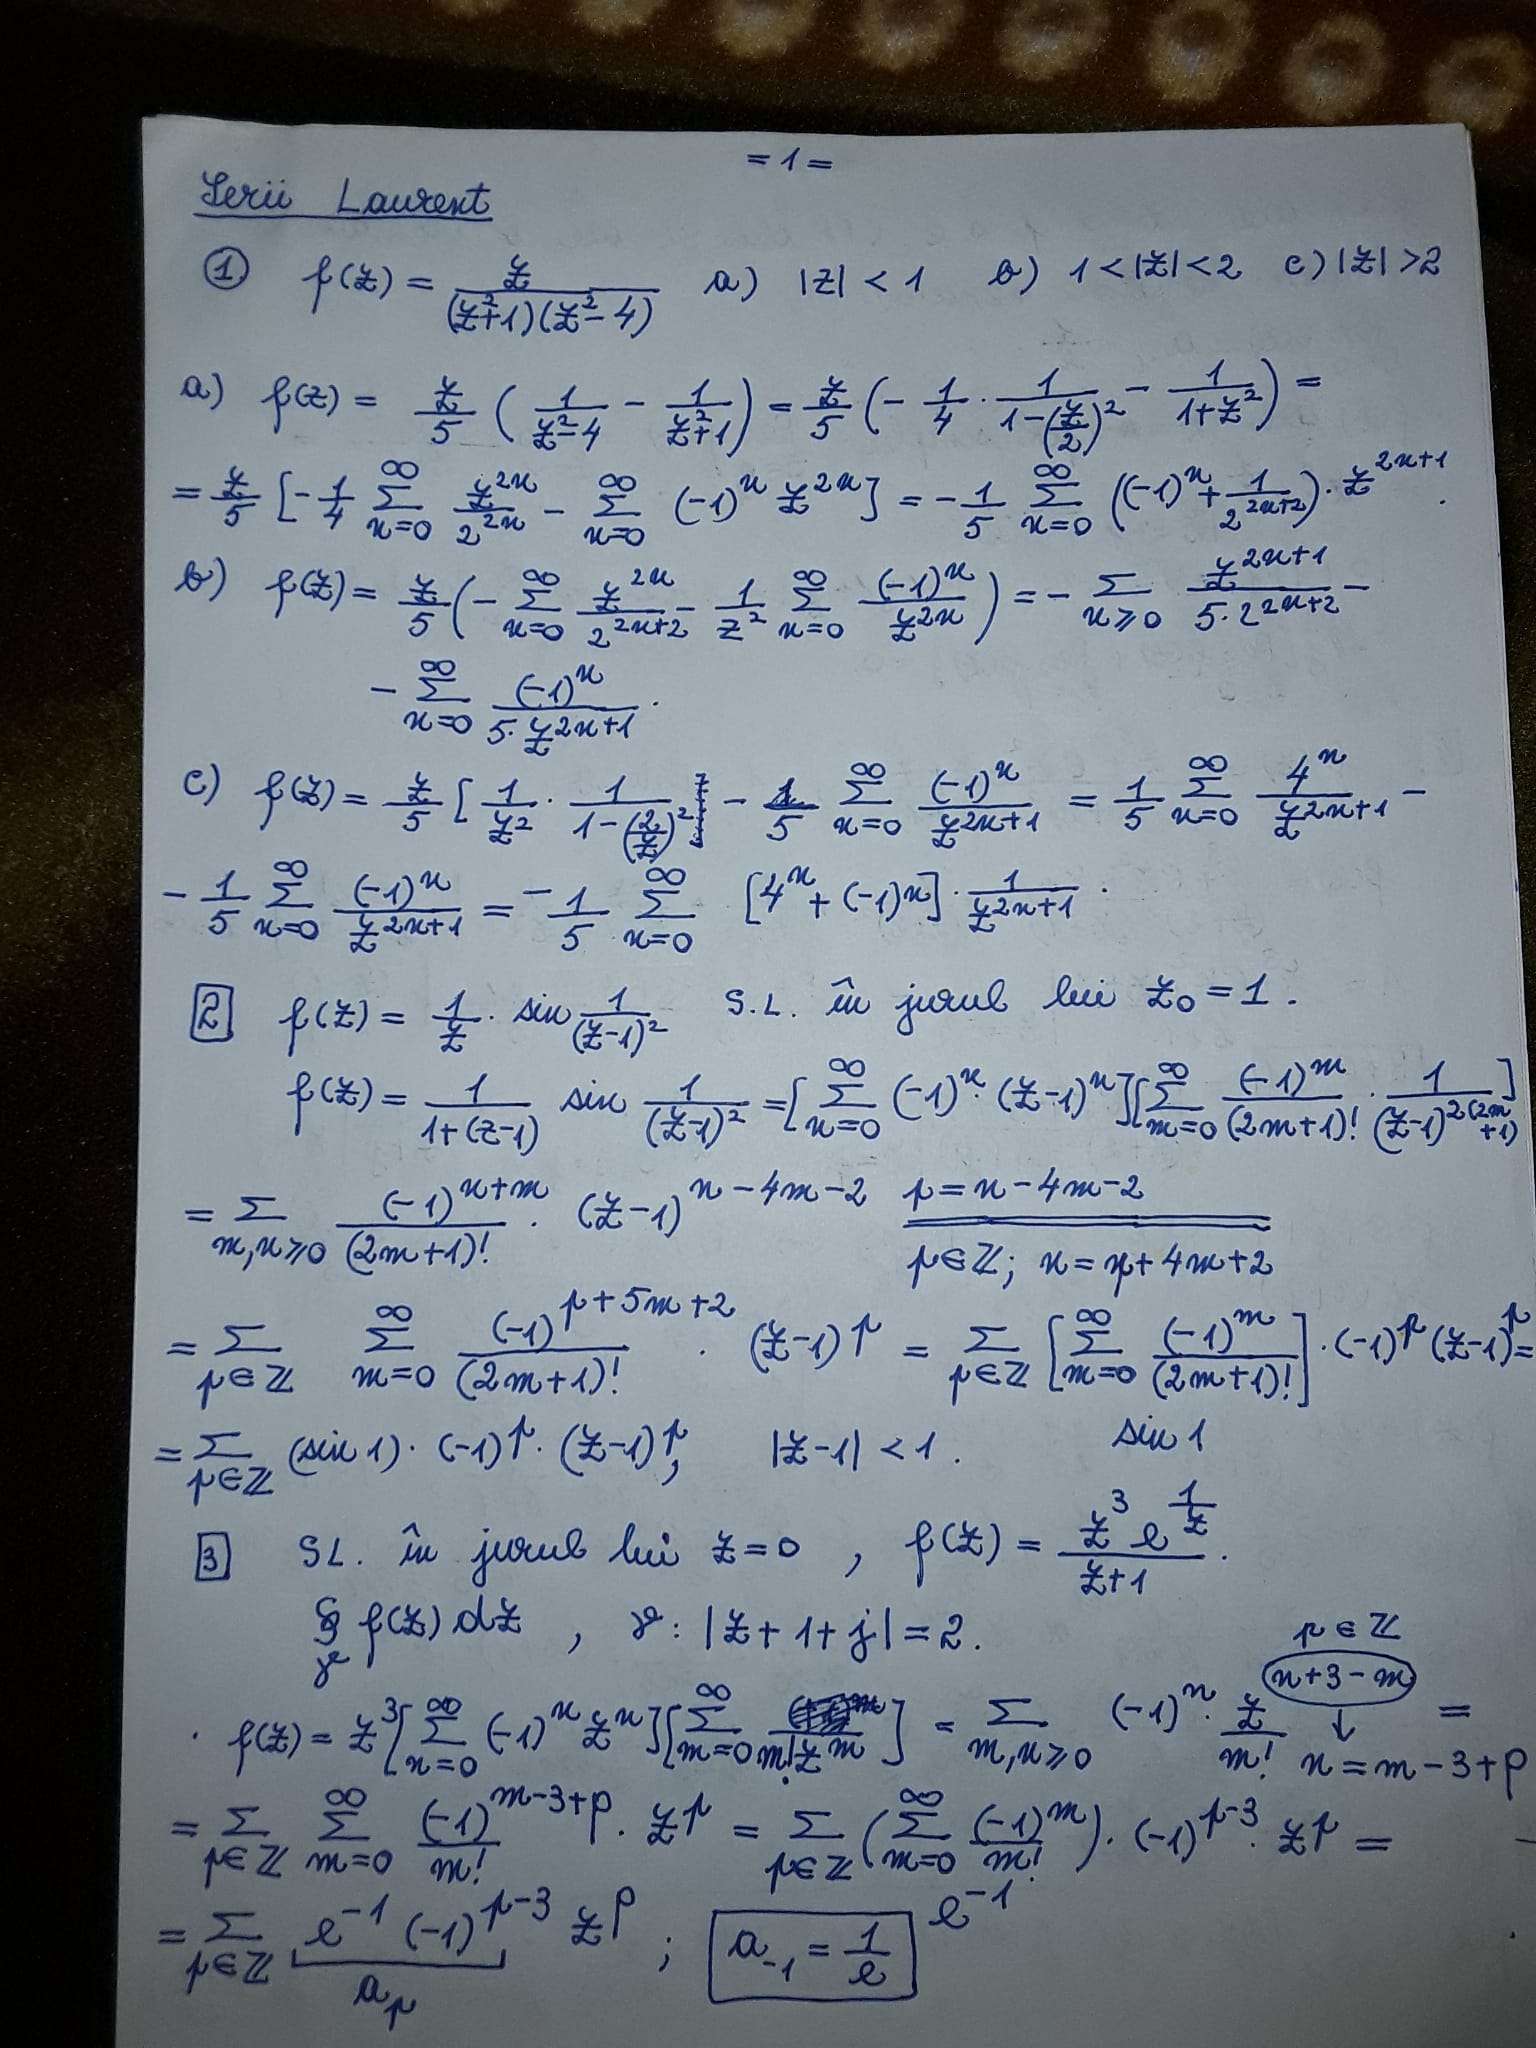 = 1 =
Serii Laurent
① f(z) = z/((z²+1)(z²-4)) a) |z| < 1 b) 1 < |z| < 2 c) |z| > 2
a) f(z) = z/5 (1/(z²-4) - 1/(z²+1)) = z/5 (- 1/4 · 1/(1-(z/2)²) - 1/(1+z²)) =
= z/5 [- 1/4 ∑_{n=0}^{∞} z^{2n}/2^{2n} - ∑_{n=0}^{∞} (-1)^n z^{2n}] = - 1/5 ∑_{n=0}^{∞} ((-1)^n + 1/2^{2n+2}) · z^{2n+1}.
b) f(z) = z/5 (- ∑_{n=0}^{∞} z^{2n}/2^{2n+2} - 1/z² ∑_{n=0}^{∞} (-1)^n/z^{2n}) = - ∑_{n≥0} z^{2n+1}/(5·2^{2n+2}) -
- ∑_{n=0}^{∞} (-1)^n/(5·z^{2n+1}).
c) f(z) = z/5 [1/z² · 1/(1-(2/z)²) - 1/5 ∑_{n=0}^{∞} (-1)^n/z^{2n+1} = 1/5 ∑_{n=0}^{∞} 4^n/z^{2n+1} -
- 1/5 ∑_{n=0}^{∞} (-1)^n/z^{2n+1} = - 1/5 ∑_{n=0}^{∞} [4^n + (-1)^n] · 1/z^{2n+1}.
2 f(z) = 1/z · sin 1/(z-1)² S.L. în jurul lui z₀ = 1.
f(z) = 1/(1+(z-1)) sin 1/(z-1)² = [∑_{n=0}^{∞} (-1)^n · (z-1)^n][∑_{m=0}^{∞} (-1)^m/(2m+1)! · 1/(z-1)^{2(2m+1)}]
= ∑_{m,n≥0} (-1)^{n+m}/(2m+1)! · (z-1)^{n-4m-2} p = n-4m-2
p∈ℤ; n = p+4m+2
= ∑_{p∈ℤ} ∑_{m=0}^{∞} (-1)^{p+5m+2}/(2m+1)! · (z-1)^p = ∑_{p∈ℤ} [∑_{m=0}^{∞} (-1)^m/(2m+1)!] · (-1)^p (z-1)^p =
= ∑_{p∈ℤ} (sin 1) · (-1)^p · (z-1)^p, |z-1| < 1. sin 1
3 SL. în jurul lui z=0, f(z) = z³ e^{1/z}/(z+1).
∮_γ f(z) dz, γ: |z+1+j| = 2.
p∈ℤ
· f(z) = z³[∑_{n=0}^{∞} (-1)^n z^n][∑_{m=0}^{∞} 1/(m! z^m)] = ∑_{m,n≥0} (-1)^n · z^{n+3-m}/m! =
↓ n = m-3+p
= ∑_{p∈ℤ} ∑_{m=0}^{∞} (-1)^{m-3+p}/m! · z^p = ∑_{p∈ℤ} (∑_{m=0}^{∞} (-1)^m/m!) · (-1)^{p-3} · z^p =
= ∑_{p∈ℤ} e^{-1} (-1)^{p-3} z^p; a_{-1} = 1/e e^{-1}
a_p